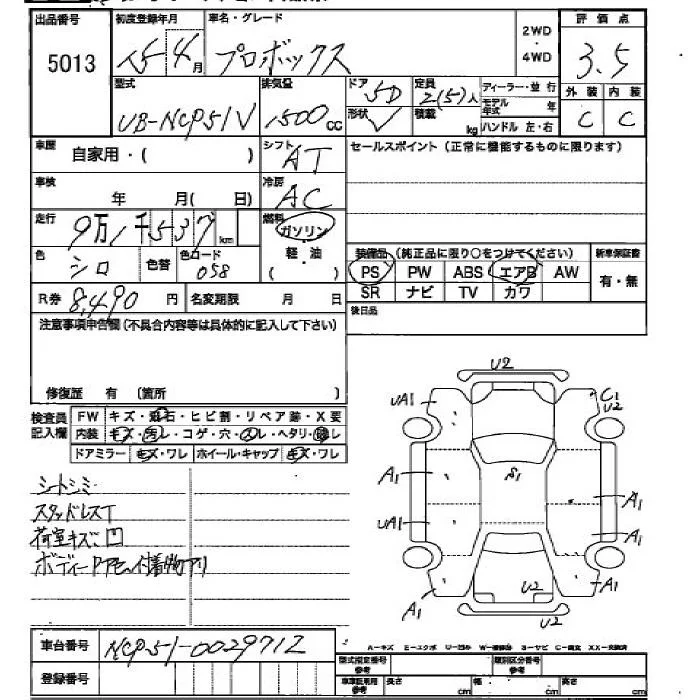 出品番号 初度登録年月 車名・グレード 2WD ・ 4WD 評価点
5013 15 4月 プロボックス 3.5
型式 排気量 ドア 5D 定員 2(5)人 ディーラー・並行 外装 内装
UB-NCP51V 1500cc 形状 V 積載 kg モデル年式 年 C C
ハンドル 左・右
車歴 自家用・( ) シフト AT セールスポイント (正常に機能するものに限ります)
車検 年 月( 日) 冷房 AC
走行 9万1千537km 燃料 ガソリン
色 シロ 色替 色コード 058 軽・油 ・( ) 装備品 (純正品に限り○をつけてください) 新車保証書
PS PW ABS エアB AW 有・無
R券 8,490円 名変期限 月 日 SR ナビ TV カワ
注意事項申告欄 (不具合内容等は具体的に記入して下さい) 後日品
修復歴 有 〔箇所 〕
検査員記入欄 FW キズ・飛石・ヒビ割・リペア跡・X要
内装 キズ・汚レ・コゲ・穴・スレ・ヘタリ・
ドアミラー キズ・ワレ ホイール・キャップ キズ・ワレ
シートシミ
スタッドレスT
荷室キズ凹
U2
UA1 C1
U2
A1 S1 A1
UA1 A1
A1 U2 A1
U2
A-キズ E-エクボ U-凹み W-補修跡 S-サビ C-腐食 XX-交換済
車台番号 NCP51-0029712
登録番号 型式指定番号 類別区分番号
車車証専用 参考 長さ cm 幅 参考 cm 高さ 参考 cm